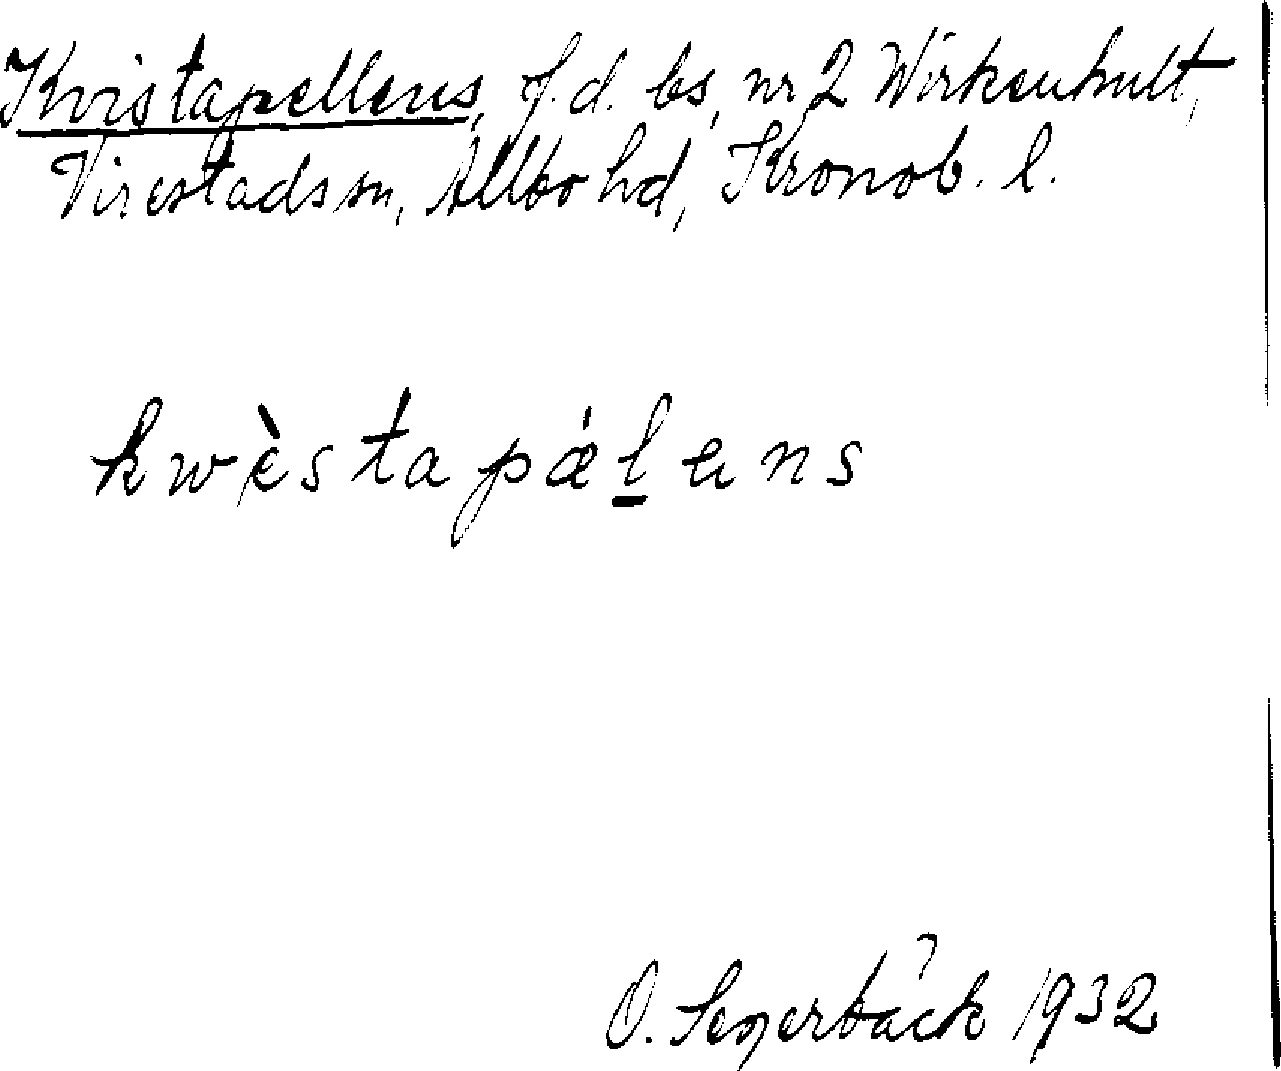 Kvistapellens, f.d. bs, nr 2 Wirkenhult,
Virestads sn, Allbo hd, Kronob. l.
kwèstapǽḷens
O. Segerbäck 1932